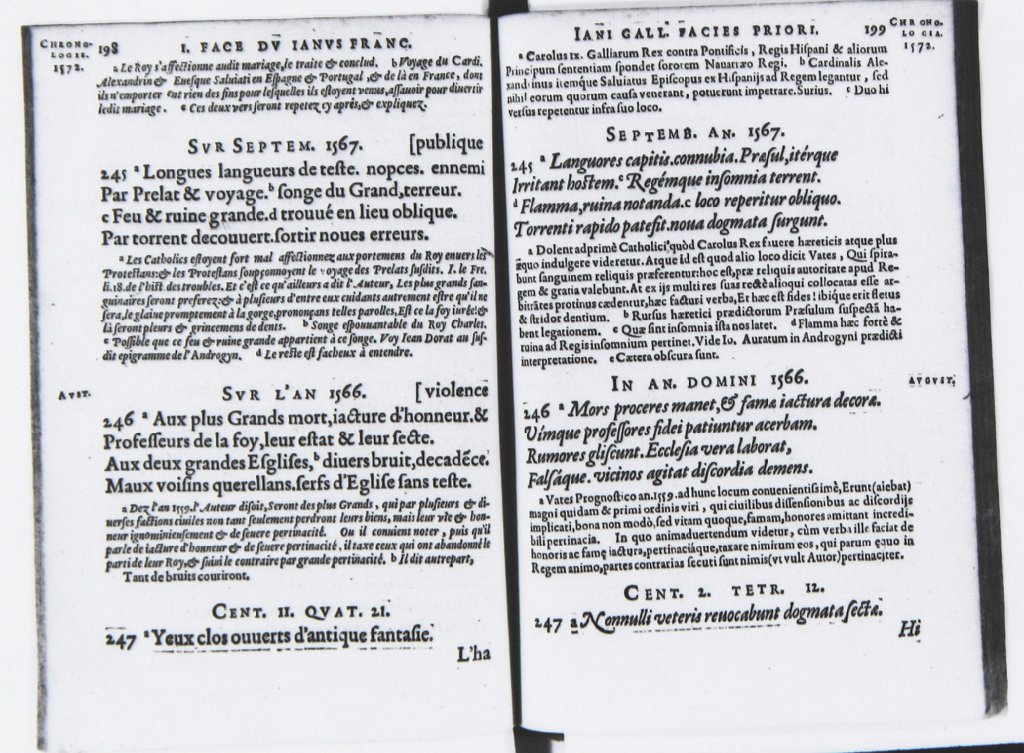 CHRONO-
LOGIE.
1572.
198 I. FACE DV IANVS FRANC.
a Le Roy s'affectionne audit mariage, le traite & conclud. b Voyage du Cardi.
Alexandrin & Euesque Saluiati en Espagne & Portugal, & de là en France, dont
ils n'emporterent rien des fins pour lesquelles ils estoyent venus, assauoir pour diuertir
ledit mariage. c Ces deux vers seront repetez cy apres, & expliquez.
SVR SEPTEM. 1567. [publique
245 a Longues langueurs de teste. nopces. ennemi
Par Prelat & voyage. b songe du Grand, terreur.
c Feu & ruine grande. d trouué en lieu oblique.
Par torrent decouuert. sortir noues erreurs.
a Les Catholics estoyent fort mal affectionnez aux portemens du Roy enuers les
Protestans: & les Protestans soupçonnoyent le voyage des Prelats susdits. I. le Fre.
li. 18. de l'hist. des troubles. Et c'est ce qu'ailleurs a dit l'Auteur, Les plus grands san-
guinaires seront preferez: & à plusieurs d'entre eux cuidants autrement estre qu'il ne
sera, le glaiue promptement à la gorge, prononçans telles parolles, Est ce la foy iurée: &
là seront pleurs & grincemens de dents. b Songe espouuantable du Roy Charles.
c Possible que ce feu & ruine grande appartient à ce songe. Voy Iean Dorat au sus-
dit epigramme de l'Androgyn. d Le reste est facheux à entendre.
AVST.
SVR L'AN 1566. [violence
246 a Aux plus Grands mort, iacture d'honneur. &
Professeurs de la foy, leur estat & leur secte.
Aux deux grandes Esglises, b diuers bruit, decadẽce.
Maux voisins querellans. serfs d'Eglise sans teste.
a Dez l'an 1559. l'Auteur disoit, Seront des plus Grands, qui par plusieurs & di-
uerses factions ciuiles non tant seulement perdront leurs biens, mais leur vie & hon-
neur ignominieusement & de seuere pertinacité. Ou il conuient noter, puis qu'il
parle de iacture d'honneur & de seuere pertinacité, il taxe ceux qui ont abandonné le
parti de leur Roy, & suiui le contraire par grande pertinacité. b Il dit autrepart,
Tant de bruits couriront.
CENT. II. QVAT. 21.
247 a Yeux clos ouuerts d'antique fantasie.
L'ha
IANI GALL. FACIES PRIORI. 199
CHRONO-
LOGIA.
1572.
a Carolus IX. Galliarum Rex contra Pontificis, Regis Hispani & aliorum
Principum sententiam spondet sororem Nauarræo Regi. b Cardinalis Ale-
xandrinus itemque Saluiatus Episcopus ex Hispanijs ad Regem legantur, sed
nihil eorum quorum causa venerant, potuerunt impetrare. Surius. c Duo hi
versus repetentur infra suo loco.
SEPTEMB. AN. 1567.
245 a Languores capitis. connubia. Præsul, itérque
Irritant hostem. c Regémque insomnia terrent.
d Flamma, ruina notanda. c loco reperitur obliquo.
Torrenti rapido patefit. noua dogmata surgunt.
a Dolent adprimè Catholici, quòd Carolus Rex fauere hæreticis atque plus
æquo indulgere videretur. Atque id est quod alio loco dicit Vates, Qui spira-
bunt sanguinem reliquis præferentur: hoc est, præ reliquis autoritate apud Re-
gem & gratia valebunt. At ex ijs multi res suas rectè alioqui collocatas esse ar-
bitrãtes protinus cædentur, hæc facturi verba, Et hæc est fides! ibique erit fletus
& stridor dentium. b Rursus hæretici prædictorum Præsulum suspectã ha-
bent legationem. c Quæ sint insomnia ista nos latet. d Flamma hæc fortè &
ruina ad Regis insomnium pertinet. Vide Io. Auratum in Androgyni prædicti
interpretatione. e Cætera obscura sunt.
IN AN. DOMINI 1566.
AVGVST.
246 a Mors proceres manet, & famæ iactura decoræ.
Vímque professores fidei patiuntur acerbam.
Rumores gliscunt. Ecclesia vera laborat,
Falsáque. vicinos agitat discordia demens.
a Vates Prognostico an. 1559. ad hunc locum conuenientissimè, Erunt (aiebat)
magni quidam & primi ordinis viri, qui ciuilibus dissensionibus ac discordijs
implicati, bona non modò, sed vitam quoque, famam, honores amittant incredi-
bili pertinacia. In quo animaduertendum videtur, cùm verba ille faciat de
honoris ac famę iactura, pertinaciáque, taxare nimirum eos, qui parum æquo in
Regem animo, partes contrarias secuti sunt nimis (vt vult Autor) pertinaciter.
CENT. 2. TETR. 12.
247 a Nonnulli veteris reuocabunt dogmata sectæ.
Hi